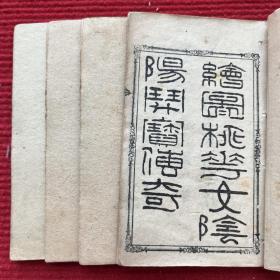 繪圖桃花女陰
陽鬪寶傳奇